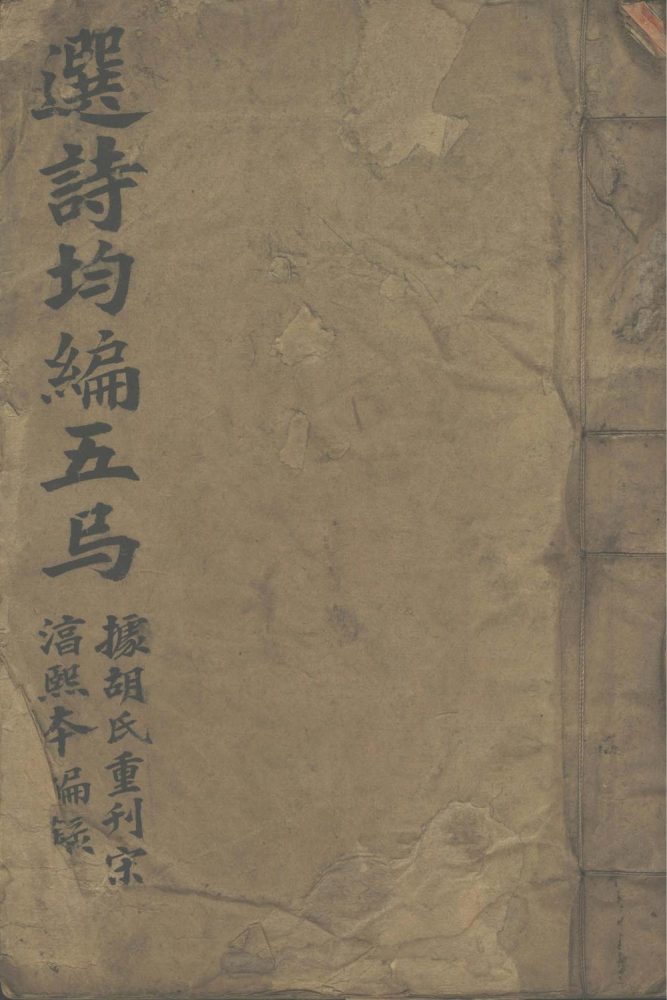 選詩均編五
據胡氏重刊宋
湻熙本編錄